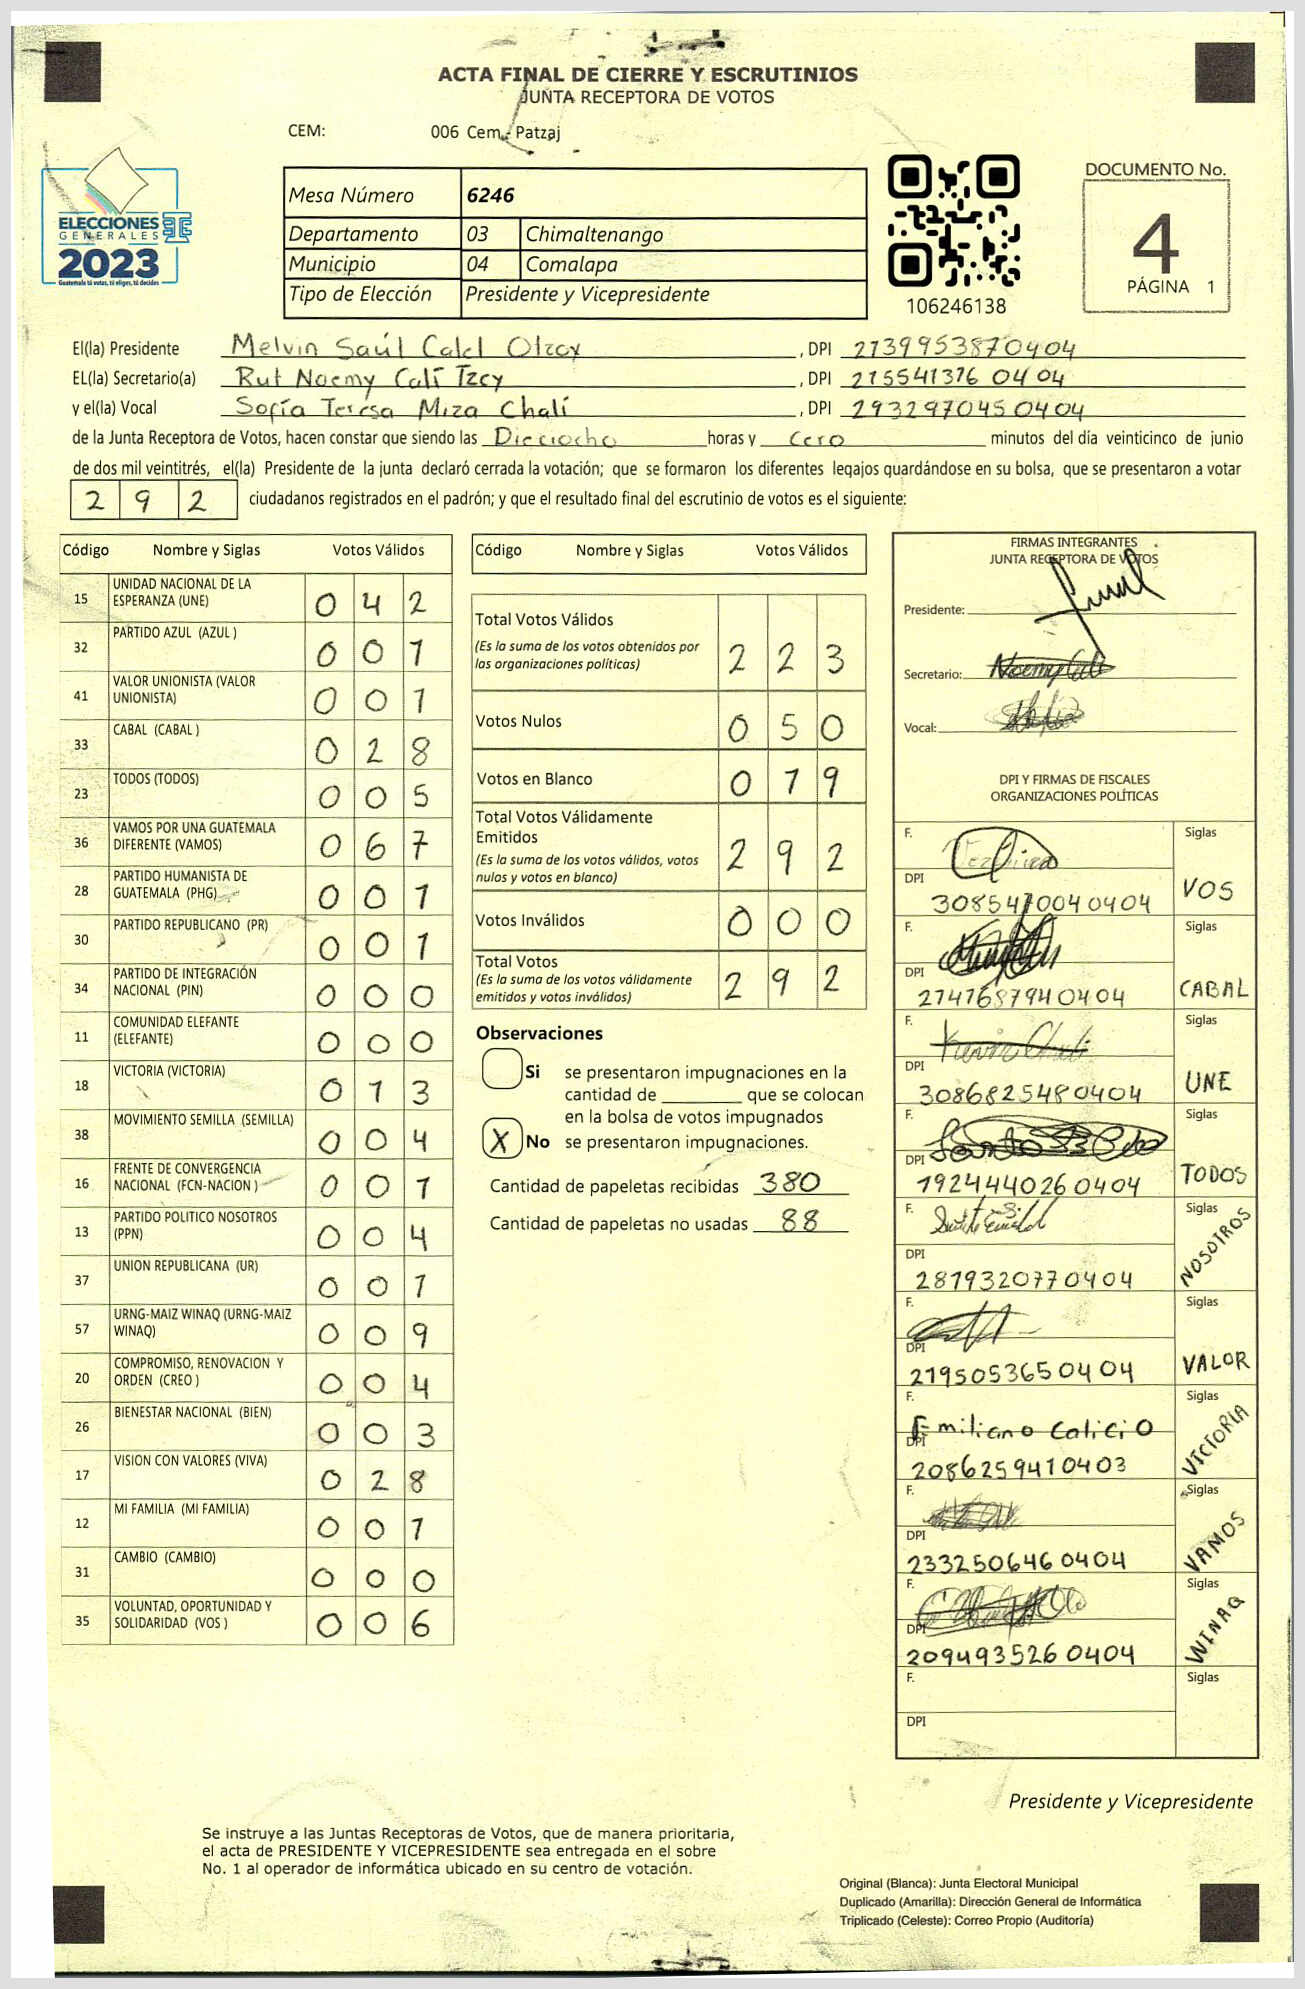 ACTA FINAL DE CIERRE Y ESCRUTINIOS
JUNTA RECEPTORA DE VOTOS
CEM: 006 Cem - Patzaj
ELECCIONES
GENERALES
2023
Guatemala tú votas, tú eliges, tú decides
TSE
Mesa Número 6246
Departamento 03 Chimaltenango
Municipio 04 Comalapa
Tipo de Elección Presidente y Vicepresidente
106246138
DOCUMENTO No.
4
PÁGINA 1
El(la) Presidente Melvin Saúl Calel Otzoy, DPI 2739953870404
EL(la) Secretario(a) Rut Noemy Calí Tzcy, DPI 215541376 04 04
y el(la) Vocal Sofía Teresa Miza Chalí, DPI 293297045 0404
de la Junta Receptora de Votos, hacen constar que siendo las Dieciocho horas y Cero minutos del día veinticinco de junio
de dos mil veintitrés, el(la) Presidente de la junta declaró cerrada la votación; que se formaron los diferentes legajos guardándose en su bolsa, que se presentaron a votar
2 9 2 ciudadanos registrados en el padrón; y que el resultado final del escrutinio de votos es el siguiente:
Código Nombre y Siglas Votos Válidos
15 UNIDAD NACIONAL DE LA ESPERANZA (UNE) 0 4 2
32 PARTIDO AZUL (AZUL ) 0 0 1
41 VALOR UNIONISTA (VALOR UNIONISTA) 0 0 1
33 CABAL (CABAL ) 0 2 8
23 TODOS (TODOS) 0 0 5
36 VAMOS POR UNA GUATEMALA DIFERENTE (VAMOS) 0 6 7
28 PARTIDO HUMANISTA DE GUATEMALA (PHG) 0 0 1
30 PARTIDO REPUBLICANO (PR) 0 0 1
34 PARTIDO DE INTEGRACIÓN NACIONAL (PIN) 0 0 0
11 COMUNIDAD ELEFANTE (ELEFANTE) 0 0 0
18 VICTORIA (VICTORIA) 0 1 3
38 MOVIMIENTO SEMILLA (SEMILLA) 0 0 4
16 FRENTE DE CONVERGENCIA NACIONAL (FCN-NACION ) 0 0 1
13 PARTIDO POLITICO NOSOTROS (PPN) 0 0 4
37 UNION REPUBLICANA (UR) 0 0 1
57 URNG-MAIZ WINAQ (URNG-MAIZ WINAQ) 0 0 9
20 COMPROMISO, RENOVACION Y ORDEN (CREO ) 0 0 4
26 BIENESTAR NACIONAL (BIEN) 0 0 3
17 VISION CON VALORES (VIVA) 0 2 8
12 MI FAMILIA (MI FAMILIA) 0 0 1
31 CAMBIO (CAMBIO) 0 0 0
35 VOLUNTAD, OPORTUNIDAD Y SOLIDARIDAD (VOS ) 0 0 6
Código Nombre y Siglas Votos Válidos
Total Votos Válidos
(Es la suma de los votos obtenidos por
las organizaciones políticas) 2 2 3
Votos Nulos 0 5 0
Votos en Blanco 0 1 9
Total Votos Válidamente
Emitidos
(Es la suma de los votos válidos, votos
nulos y votos en blanco) 2 9 2
Votos Inválidos 0 0 0
Total Votos
(Es la suma de los votos válidamente
emitidos y votos inválidos) 2 9 2
Observaciones
Si se presentaron impugnaciones en la
cantidad de ________ que se colocan
en la bolsa de votos impugnados
X No se presentaron impugnaciones.
Cantidad de papeletas recibidas 380
Cantidad de papeletas no usadas 88
FIRMAS INTEGRANTES
JUNTA RECEPTORA DE VOTOS
Presidente:
Secretario: Noemy Calí
Vocal:
DPI Y FIRMAS DE FISCALES
ORGANIZACIONES POLÍTICAS
F. Siglas
DPI 3085470040404 VOS
F. Siglas
DPI 2747687940404 CABAL
F. Kevin Chali Siglas
DPI 3086825480404 UNE
F. Siglas
DPI 1924440260404 TODOS
F. Siglas
DPI 2819320770404 NOSOTROS
F. Siglas
DPI 2195053650404 VALOR
F. Emiliano Calicio Siglas
DPI 2086259410403 VICTORIA
F. Siglas
DPI 2332506460404 VAMOS
F. Siglas
DPI 2094935260404 WINAQ
F. Siglas
DPI
Presidente y Vicepresidente
Se instruye a las Juntas Receptoras de Votos, que de manera prioritaria,
el acta de PRESIDENTE Y VICEPRESIDENTE sea entregada en el sobre
No. 1 al operador de informática ubicado en su centro de votación.
Original (Blanca): Junta Electoral Municipal
Duplicado (Amarilla): Dirección General de Informática
Triplicado (Celeste): Correo Propio (Auditoría)